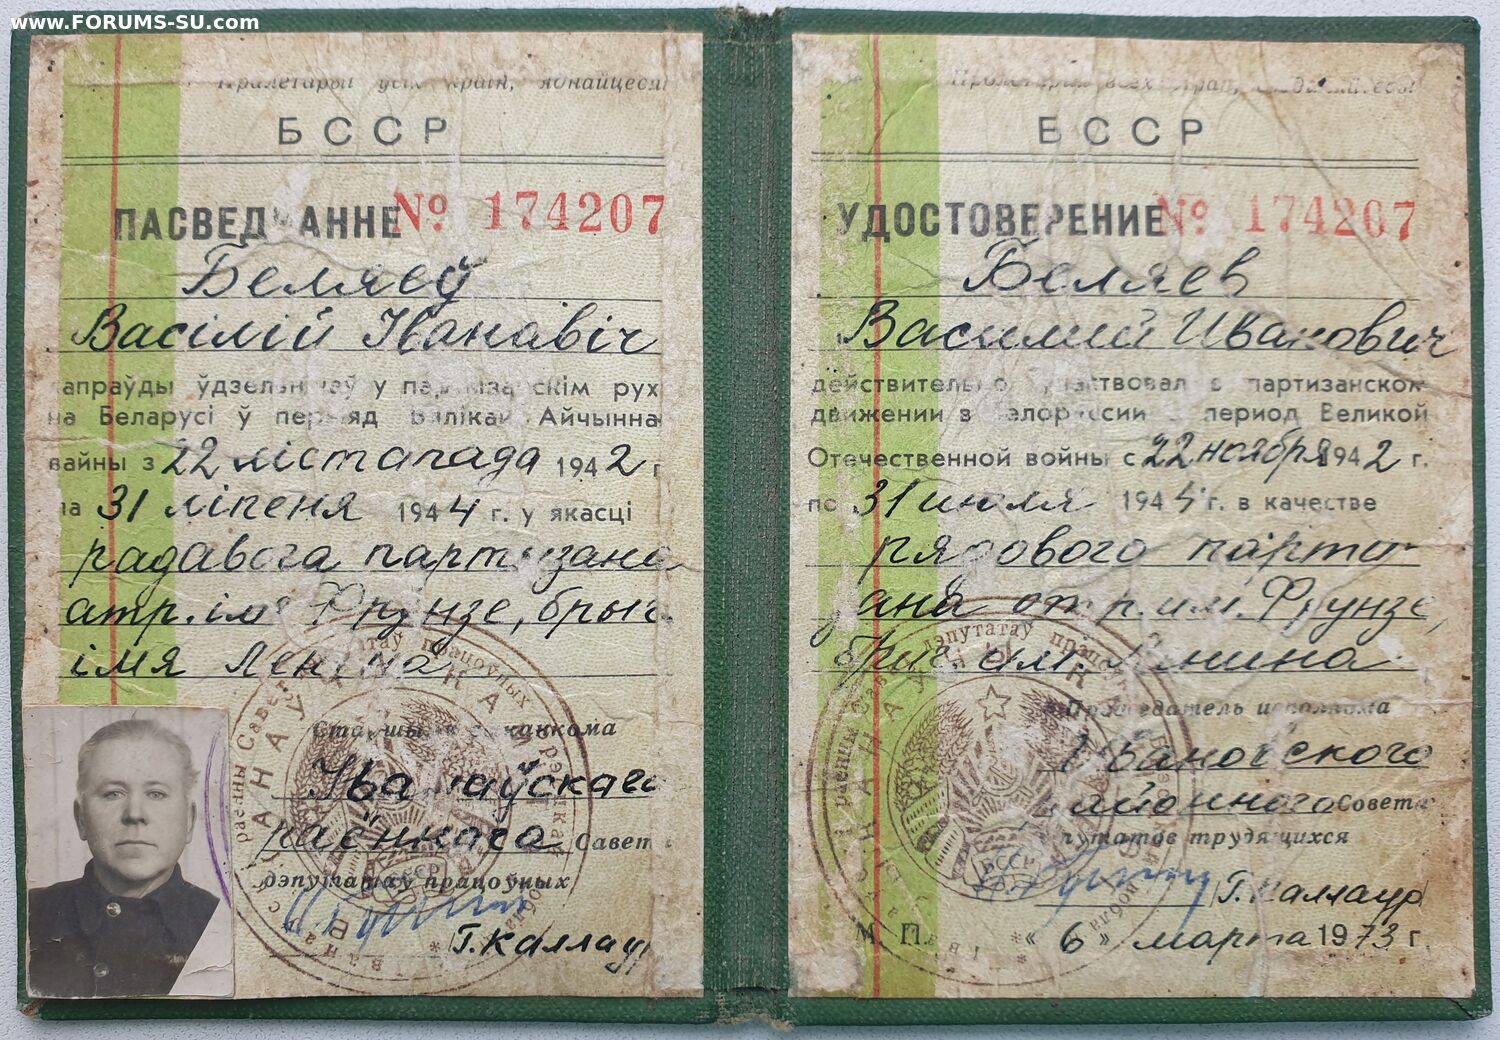 www.FORUMS-SU.com
Пралетарыі ўсіх краін, яднайцеся!
БССР
ПАСВЕДЧАННЕ № 174207
Беляеў
Васілій Іванавіч
сапраўды ўдзельнічаў у партызанскім рух
на Беларусі ў перыяд Вялікай Айчынна
вайны з 22 лістапада 1942 г
па 31 ліпеня 1944 г. у якасці
радавога партызана
атр. імя Фрунзе, брыг.
імя Леніна
Старшыня выканкома
Іванаўскага
раённага Савета
дэпутатаў працоўных
Г. Каллаур
Пролетарии всех стран, соединяйтесь!
БССР
УДОСТОВЕРЕНИЕ № 174207
Беляев
Василий Иванович
действительно участвовал в партизанском
движении в Белоруссии в период Великой
Отечественной войны с 22 ноября 1942 г.
по 31 июля 1944 г. в качестве
рядового парти-
зана отр. им. Фрунзе,
бриг. им. Ленина
Председатель исполкома
Ивановского
районного Совета
депутатов трудящихся
Г. Каллаур
М. П. « 6 » марта 1973 г.
БССР
БССР